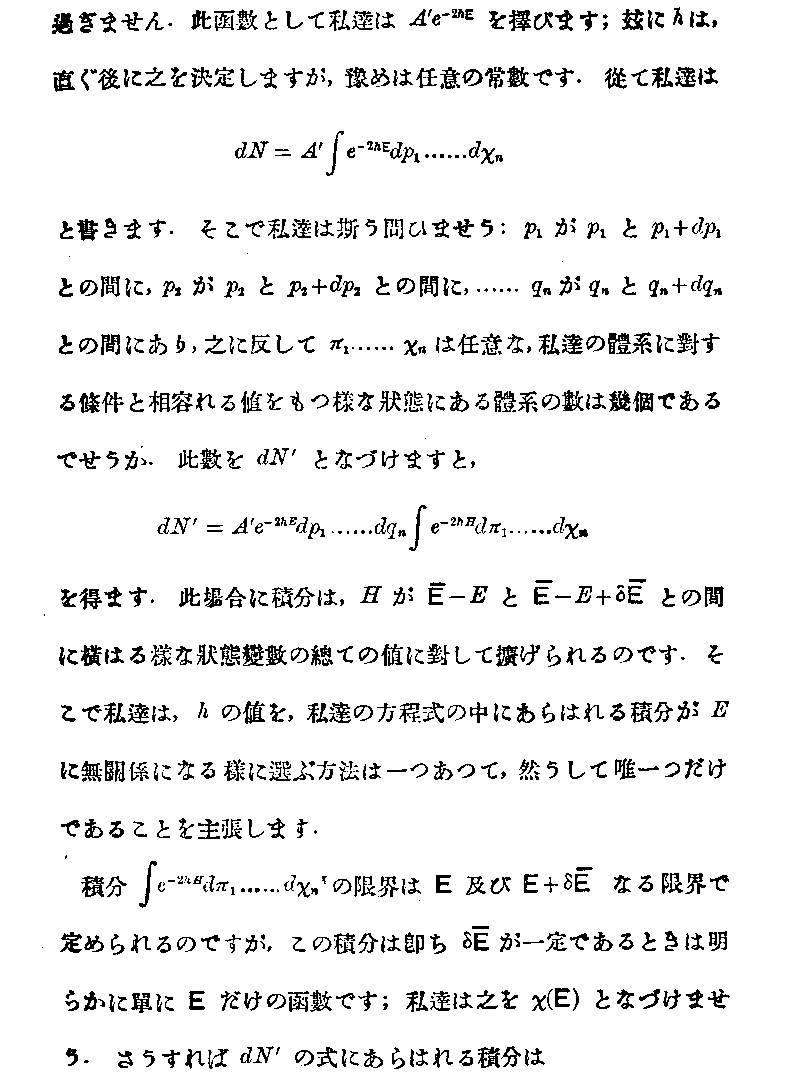 過ぎません．此函數として私達は A′e⁻²ʰᴱ を擇びます；玆に h は，
直ぐ後に之を決定しますが，豫めは任意の常數です．從て私達は
dN = A′∫e⁻²ʰᴱdp₁……dχₙ
と書きます．そこで私達は斯う問ひませう：p₁ が p₁ と p₁+dp₁
との間に，p₂ が p₂ と p₂+dp₂ との間に，…… qₙ が qₙ と qₙ+dqₙ
との間にあり，之に反して π₁…… χₙ は任意な，私達の體系に對す
る條件と相容れる値をもつ樣な狀態にある體系の數は幾個である
でせうか．此數を dN′ となづけますと，
dN′ = A′e⁻²ʰᴱdp₁……dqₙ∫e⁻²ʰᴴdπ₁……dχₙ
を得ます．此場合に積分は，H が E̅−E と E̅−E+δE̅ との間
に橫はる樣な狀態變數の總ての値に對して擴げられるのです．そ
こで私達は，h の値を，私達の方程式の中にあらはれる積分が E
に無關係になる樣に選ぶ方法は一つあつて，然うして唯一つだけ
であることを主張します．
積分 ∫e⁻²ʰᴴdπ₁……dχₙ の限界は E 及び E+δE̅ なる限界で
定められるのですが，この積分は卽ち δE̅ が一定であるときは明
らかに單に E だけの函數です；私達は之を χ(E) となづけませ
う．さうすれば dN′ の式にあらはれる積分は